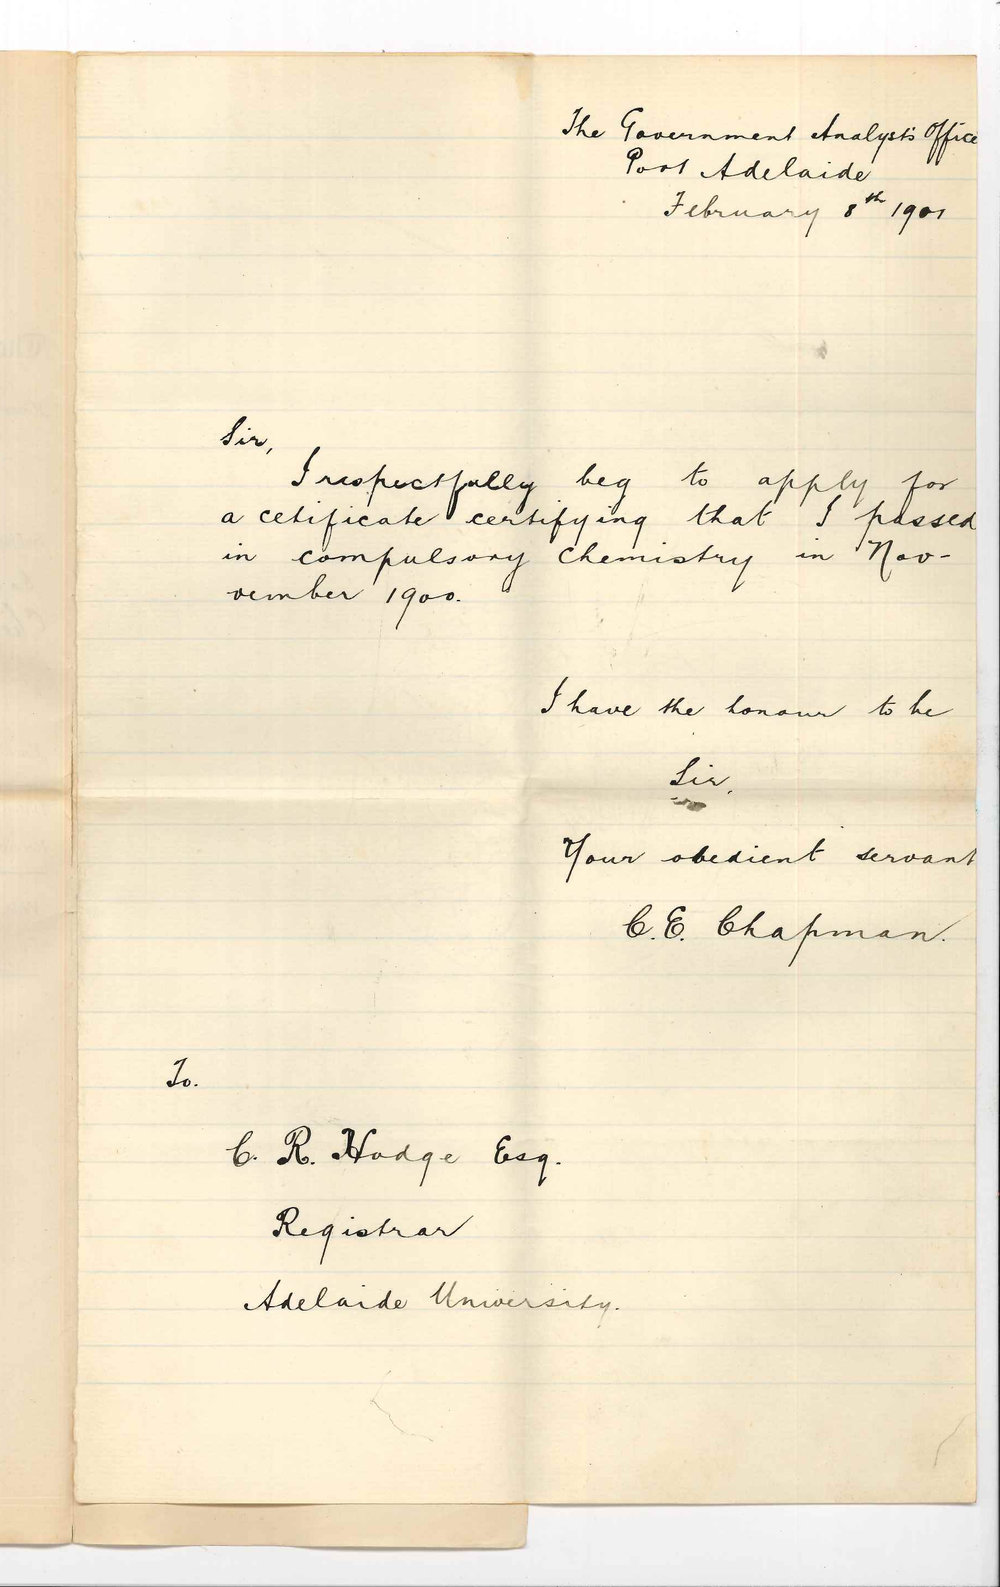 The Government Analyst's Office
Port Adelaide
February 8th 1901
Sir,
I respectfully beg to apply for
a cetificate certifying that I passed
in compulsory chemistry in Nov-
vember 1900.
I have the honour to be
Sir,
Your obedient servant
C.E. Chapman.
To.
C. R. Hodge Esq.
Registrar
Adelaide University.